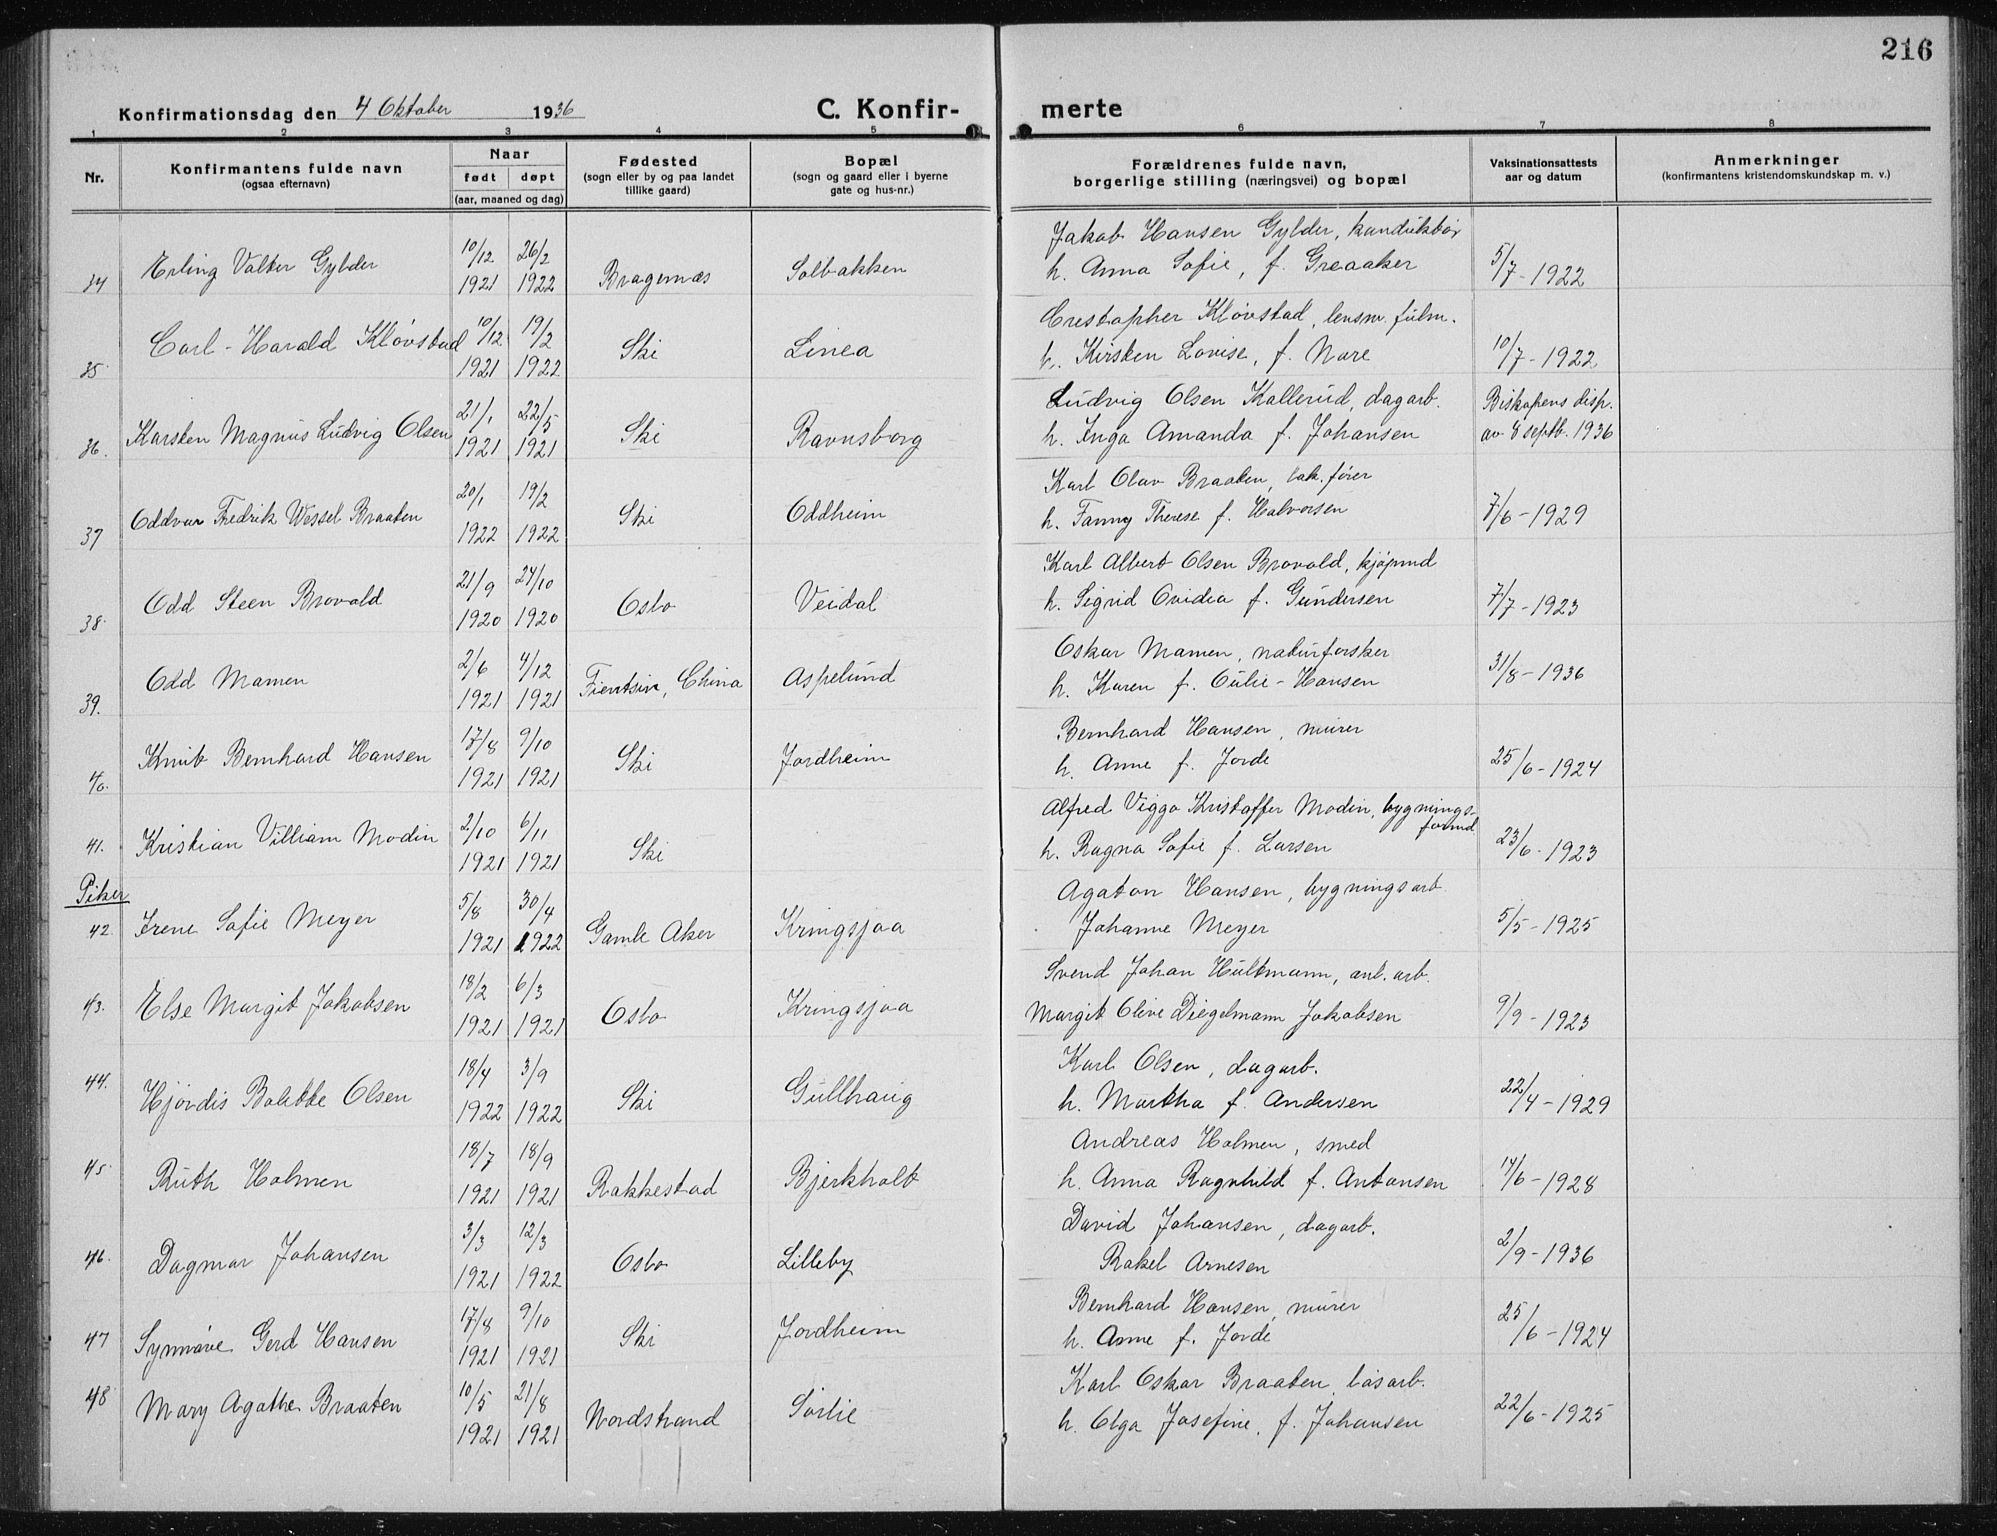 216
Konfirmationsdag den 4 Oktober 1936 C. Konfir- merte
1 2 3 4 5 6 7 8
Nr. Konfirmantens fulde navn (ogsaa efternavn) Naar født døpt (aar, maaned og dag) Fødested (sogn eller by og paa landet tillike gaard) Bopæl (sogn og gaard eller i byerne gate og hus-nr.) Forældrenes fulde navn, borgerlige stilling (næringsvei) og bopæl Vaksinationsattests aar og datum Anmerkninger (konfirmantens kristendomskundskap m. v.)
34 Erling Valter Gylder 10/12 1921 26/2 1922 Bragernæs Solbakken Jakob Hansen Gylder, konduktør
h. Anna Sofie, f. Greaaker 5/7-1922
35 Carl-Harald Kløvstad 10/12 1921 19/2 1922 Ski Linea Crestopher Kløvstad, lensm. fulm.
h. Kirsten Lovise, f. Nore 10/7-1922
36. Karsten Magnus Ludvig Olsen 21/1 1921 22/5 1921 Ski Ravnsborg Ludvig Olsen Kallerud, dagarb. Biskopens disp.
h. Inga Amanda f. Johansen av 8 septb. 1936
37 Oddvar Fredrik Wessel Braaten 20/1 1922 19/2 1922 Ski Oddheim Karl Olav Braaten, lok.fører
h. Fanny Therese f. Halvorsen 7/6-1929
38. Odd Steen Brovold 21/9 1920 24/10 1920 Oslo Veidal Karl Albert Olsen Brovold, kjøpmd
h. Sigrid Ovidia f. Gundersen 7/7-1923
39. Odd Mamen 2/6 1921 4/12 1921 Tientsin, China Aspelund Oskar Mamen, naturforsker
h. Karen f. Oulie-Hansen 31/8-1936
40. Knut Bernhard Hansen 17/8 1921 9/10 1921 Ski Jordheim Bernhard Hansen, murer
h. Anne f. Jorde 25/6-1924
41. Kristian Villiam Modin 2/10 1921 6/11 1921 Ski Alfred Viggo Kristoffer Modin, bygnings-
formd.
h. Ragna Sofie f. Larsen 23/6-1923
Piker
42 Irene Sofie Meyer 5/8 1921 30/4 1922 Gamle Aker Kringsjaa Agaton Hansen, bygningsarb.
Johanne Meyer 5/5-1925
43. Else Margit Jakobsen 18/2 1921 6/3 1921 Oslo Kringsjaa Svend Johan Hultmann, anl. arb.
Margit Olive Diegelmann Jakobsen 9/9-1923
44. Hjørdis Bolette Olsen 18/4 1922 3/9 1922 Ski Gullhaug Karl Olsen, dagarb.
h. Martha f. Andersen 22/4-1929
45. Ruth Holmen 18/7 1921 18/9 1921 Rakkestad Bjerkholt Andreas Holmen, smed
h. Anna Ragnhild f. Antonsen 14/6-1928
46. Dagmar Johansen 3/3 1921 12/3 1922 Oslo Lilleby David Johansen, dagarb.
Rakel Arnesen 2/9-1936
47 Synnøve Gerd Hansen 17/8 1921 9/10 1921 Ski Jordheim Bernhard Hansen, murer
h. Anne f. Jorde 25/6-1924
48 Mary Agathe Braaten 10/5 1921 21/8 1921 Nordstrand Sørlie Karl Oskar Braaten, løsarb.
h. Olga Josefine, f. Johansen 22/6-1925